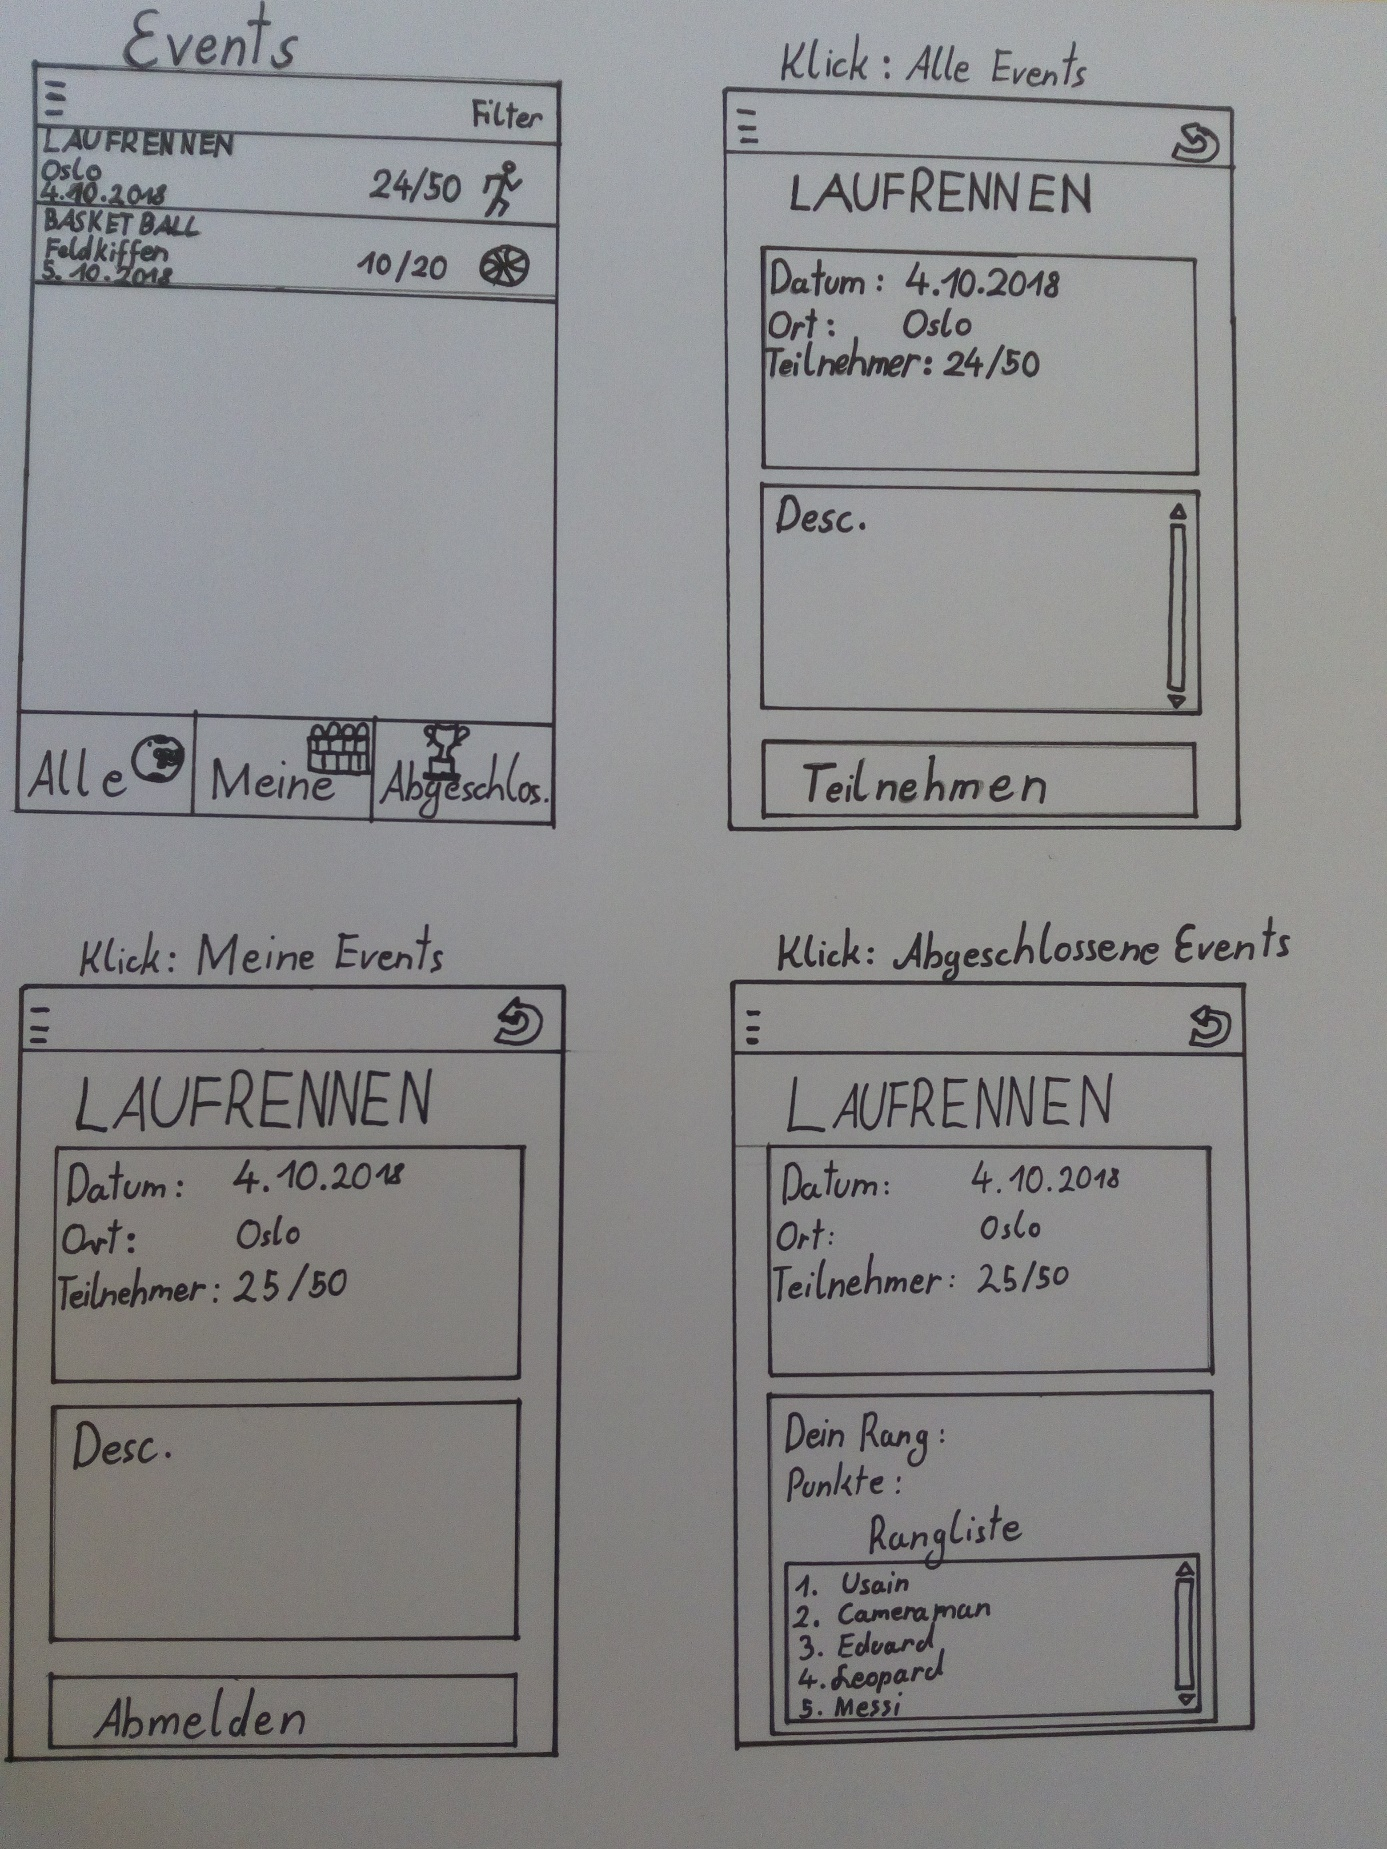 Events
Filter
LAUFRENNEN
Oslo
4.10.2018
24/50
BASKETBALL
Feldkiffen
5.10.2018
10/20
Alle
Meine
Abgeschlos.
Klick: Alle Events
LAUFRENNEN
Datum: 4.10.2018
Ort: Oslo
Teilnehmer: 24/50
Desc.
Teilnehmen
Klick: Meine Events
LAUFRENNEN
Datum: 4.10.2018
Ort: Oslo
Teilnehmer: 25/50
Desc.
Abmelden
Klick: Abgeschlossene Events
LAUFRENNEN
Datum: 4.10.2018
Ort: Oslo
Teilnehmer: 25/50
Dein Rang:
Punkte:
Rangliste
1. Usain
2. Cameraman
3. Eduard
4. Leopard
5. Messi